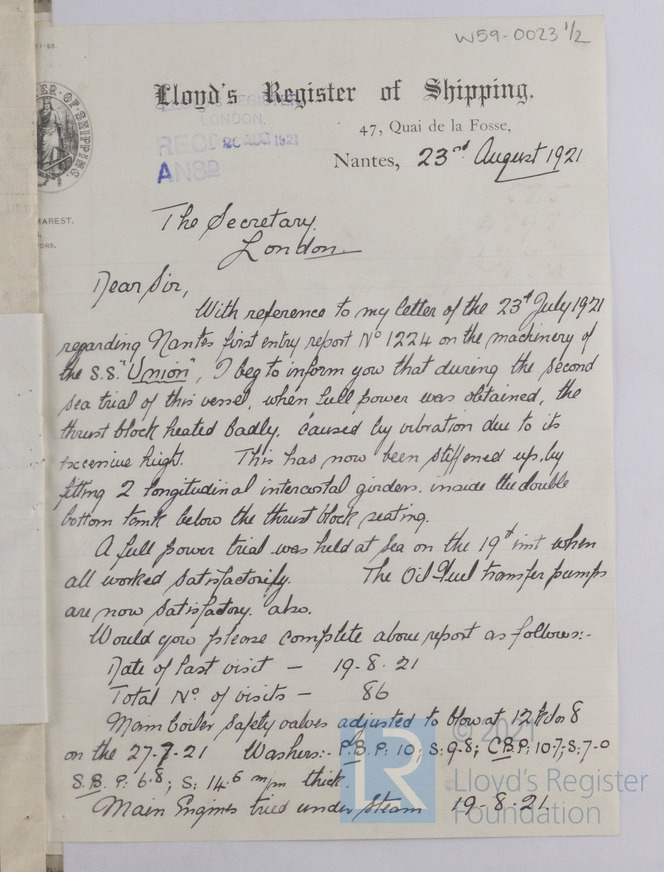 W59-0023 1/2
Lloyd's Register of Shipping.
LLOYD'S REGISTER
LONDON.
REC'D 26 AUG 1921
ANSD
47, Quai de la Fosse,
Nantes, 23rd August 1921
The Secretary.
London.
Dear Sir,
With reference to my letter of the 23d July 1921
regarding Nantes first entry report No 1224 on the machinery of
the S.S. "Union", I beg to inform you that during the second
sea trial of this vessel, when full power was obtained, the
thrust block heated badly, caused by vibration due to its
excessive hight. This has now been stiffened up, by
fitting 2 longitudinal intercostal girders inside the double
bottom tank below the thrust block seating.
A full power trial was held at sea on the 19d inst when
all worked satisfactorily. The Oil Fuel transfer pumps
are now satisfactory also.
Would you please complete above report as follows:-
Date of last visit — 19-8-21
Total No of visits — 86
Main boiler safety valves adjusted to blow at 12
on the 27-7-21 Washers:- P.B. P: 10; S: 9-8; C.B.P: 10.7; S: 7-0
S.B. P: 6.8; S: 14.6 m/m thick.
Main Engines tried under steam 19-8-21.
© 2021
Lloyd's Register
Foundation
LR